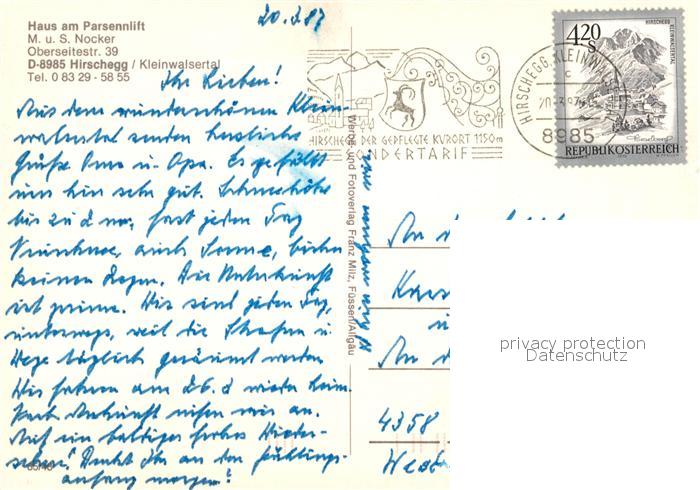 Haus am Parsennlift
M. u. S. Nocker
Oberseitestr. 39
D-8985 Hirschegg / Kleinwalsertal
Tel. 0 83 29 - 58 55
20.3.87
Ihr Lieben!
Aus dem wunderschönen Klein-
walsertal senden herzliche
Grüße Oma u. Opa. Es gefällt
uns hier sehr gut. Schneehöhe
bis zu 2 m, fast jeden Tag
Neuschnee, auch Sonne, bisher
keinen Regen. Die Unterkunft
ist prima. Wir sind jeden Tag
unterwegs, weil die Straßen u.
Wege täglich geräumt werden
Wir fahren am 26.3 wieder heim.
Nach Ankunft rufen wir an.
Auf ein baldiges frohes Wieder-
sehen! Denkt Ihr an den Frühlings-
anfang morgen!
65/40
Werbe- und Fotoverlag Franz Milz, Füssen/Allgäu
HIRSCHEGG DER GEPFLEGTE KURORT 1150m
SONDERTARIF
HIRSCHEGG, KLEINW
c
20.-3.87
8985
4.20
S
HIRSCHEGG
KLEINWALSERTAL
REPUBLIK ÖSTERREICH
An
u
An
4358
privacy protection
Datenschutz